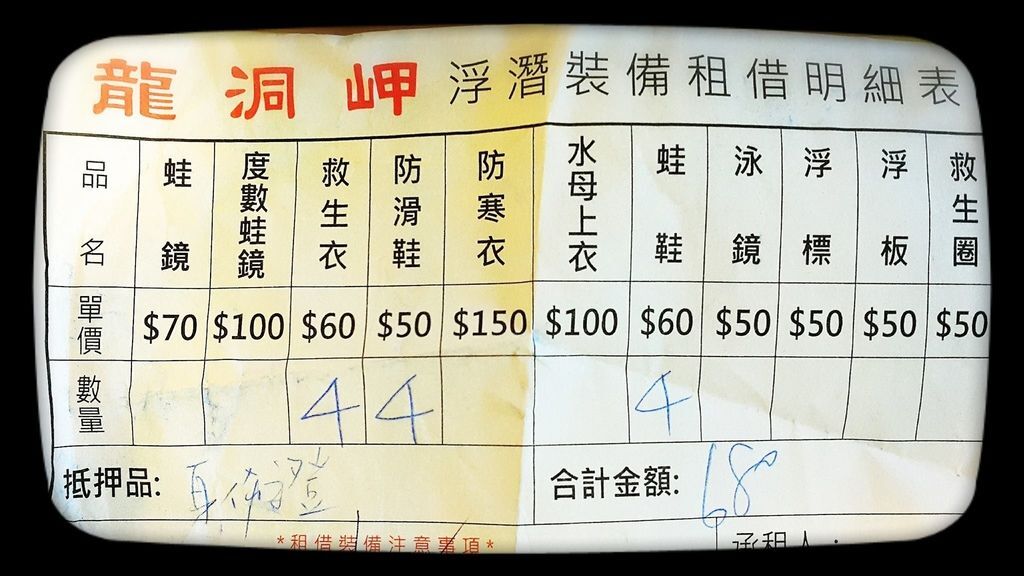 龍洞岬 浮潛裝備租借明細表
品名 蛙鏡 度數蛙鏡 救生衣 防滑鞋 防寒衣 水母上衣 蛙鞋 泳鏡 浮標 浮板 救生圈
單價 $70 $100 $60 $50 $150 $100 $60 $50 $50 $50 $50
數量 4 4 4
抵押品: 合計金額: 680
*租借裝備注意事項* 承租人: